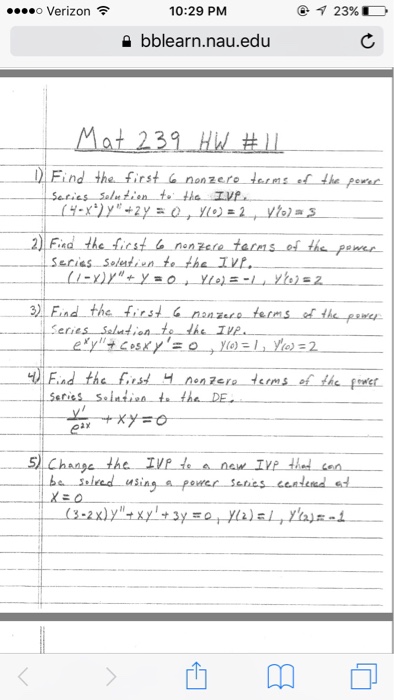 Verizon 10:29 PM 23%
bblearn.nau.edu
Mat 239 HW #11
1) Find the first 6 nonzero terms of the power
series solution to the IVP.
(4-x²)y"+2y=0, y(0)=2, y'(0)=5
2) Find the first 6 nonzero terms of the power
series solution to the IVP.
(1-x)y"+y=0, y(0)=-1, y'(0)=2
3) Find the first 6 nonzero terms of the power
series solution to the IVP.
e^x y"+cosxy'=0, y(0)=1, y'(0)=2
4) Find the first 4 nonzero terms of the power
series solution to the DE.
y'/e^2x + xy=0
5) Change the IVP to a new IVP that can
be solved using a power series centered at
x=0
(3-2x)y"+xy'+3y=0, y(2)=1, y'(2)=-1